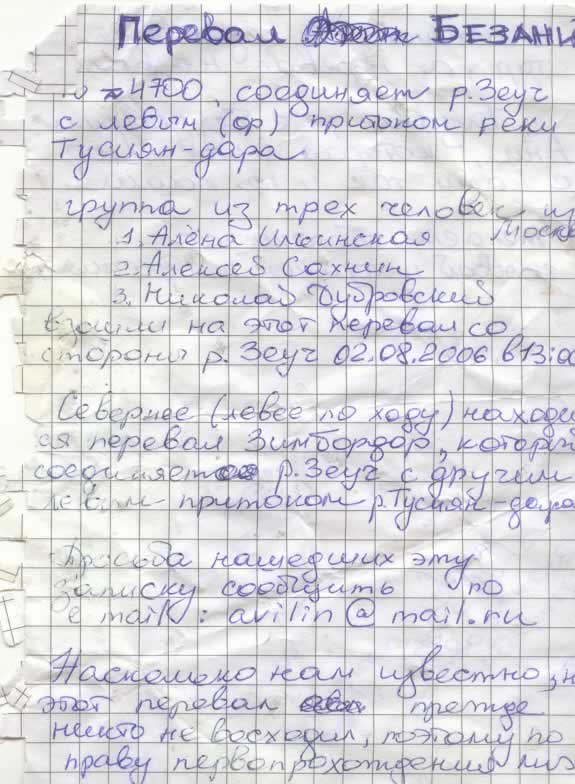 Перевал БЕЗАНИ
≈ 4700, соединяет р. Зеуч
с левым (ор) притоком реки
Тусиян-дара
группа из трех человек из
Москв
1. Алёна Ильинская
2. Алексей Сахнин
3. Николай Дубровский
взошли на этот перевал со
стороны р. Зеуч 02.08.2006 в 13:00
Севернее (левее по ходу) находи
ся перевал Зимбордор, который
соединяет р. Зеуч с другим
левым притоком р. Тусиян-дара
Просьба нашедших эту
записку сообщить по
e mail: avilin@mail.ru
Насколько нам известно, н
этот перевал прежде
никто не восходил, поэтому по
праву первопрохождения мы